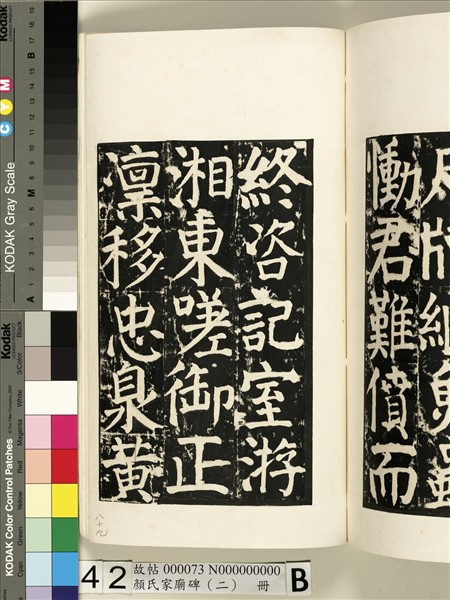 慟君難償而
終咨記室游
湘東嗟御正
凜移忠泉黃
八十九
42
故帖 000073 N000000000
顏氏家廟碑(二) 冊
B
Kodak
KODAK Gray Scale
C Y M
A 1 2 3 4 5 6 M 8 9 10 11 12 13 14 15 B 17 18 19
Kodak
KODAK Color Control Patches
Blue Cyan Green Yellow Red Magenta White 3/Color Black